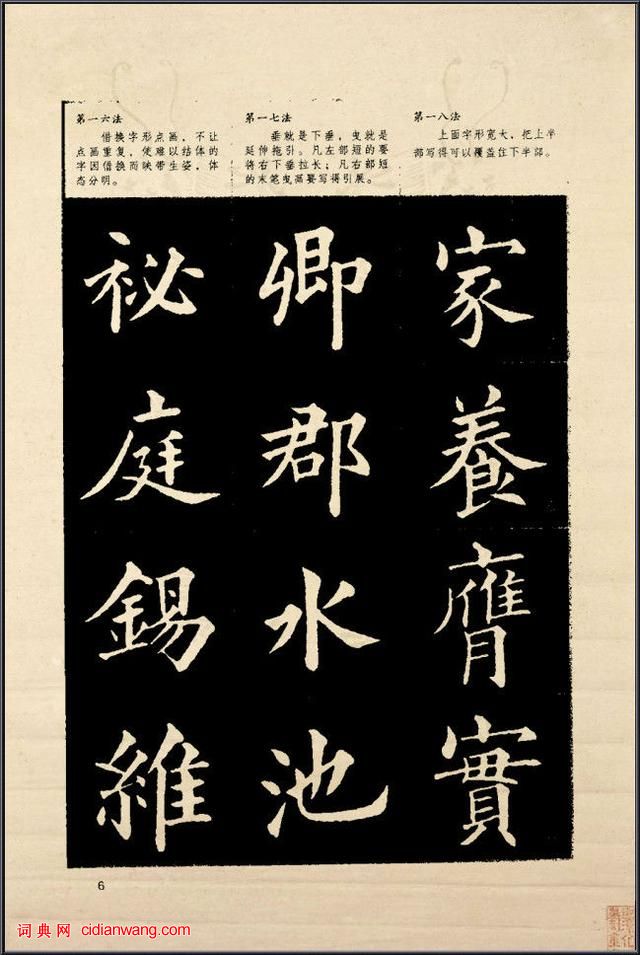 第一六法
借换字形点画，不让
点画重复，使难以结体的
字因借换而映带生姿，体
态分明。
第一七法
垂就是下垂，曳就是
延伸拖引。凡左部短的要
将右下垂拉长；凡右部短
的末笔曳画要写得引展。
第一八法
上面字形宽大，把上半
部写得可以覆盖住下半部。
祕 卿 家
庭 郡 養
錫 水 膺
維 池 實
6
词典网 cidianwang.com